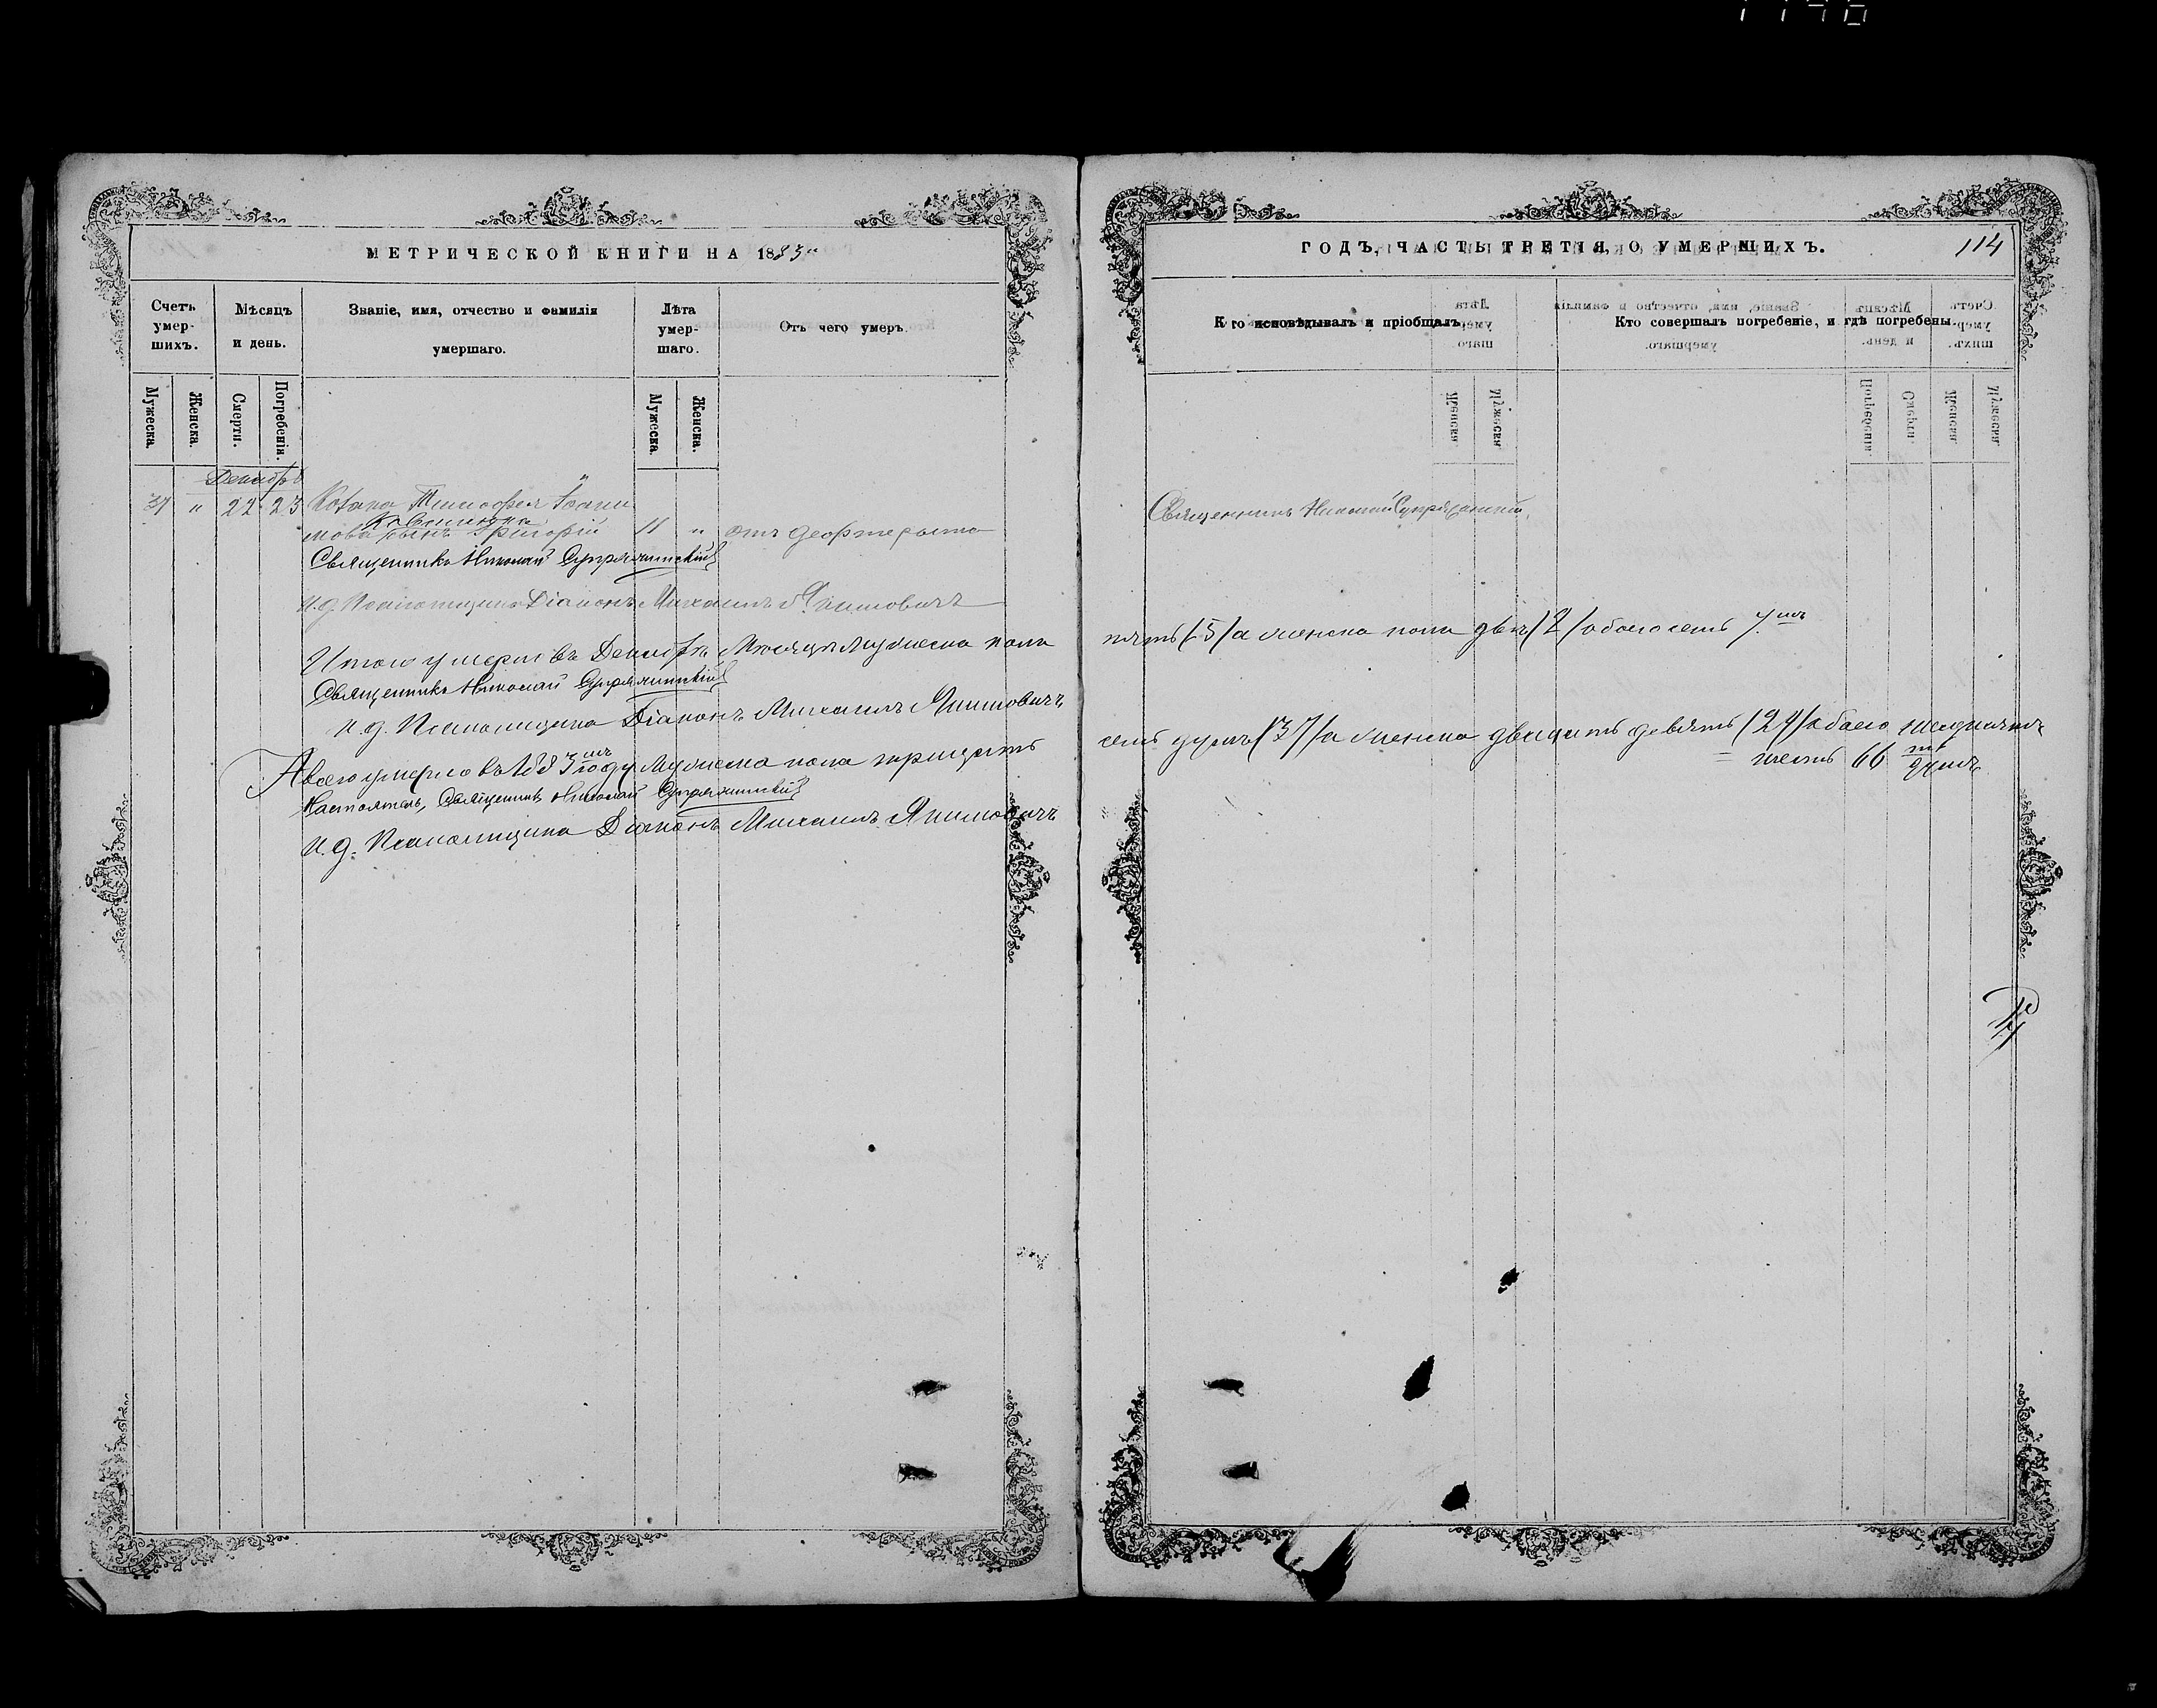 МЕТРИЧЕСКОЙ КНИГИ НА 1883"
Счетъ умер-шихъ.
Мѣсяцъ и день.
Званіе, имя, отчество и фамилія умершаго.
Лѣта умер-шаго.
Отъ чего умеръ.
Мужеска.
Женска.
Смерти.
Погребенія.
Мужеска.
Женска.
Декабрь
37 " 22 23 Козака Тимофея Іоанн
нова сынъ Григорій 11 " отъ
Священникъ Николай
Діаконъ Михаилъ Якимовичъ
Итого умерло въ Декабрѣ Мѣсяцѣ мужеска пола
Священникъ Николай
и. д. Псаломщика Діаконъ Михаилъ Якимовичъ
А всего умерло въ 1883 мъ году мужеска пола тридцать
Настоятель, Священникъ Николай
и. д. Псаломщика Діаконъ Михаилъ Якимовичъ
ГОДЪ, ЧАСТЬ ТРЕТІЯ, О УМЕРШИХЪ.
114
Кто исповѣдывалъ и пріобщалъ.
Кто совершалъ погребеніе, и гдѣ погребены.
Священникъ Николай
пять (5) а женска пола двѣ (2) обоего семь 7.
семь душъ (37) а женска двадцать девять (29) обоего шесдесятъ
= шесть 66 душъ